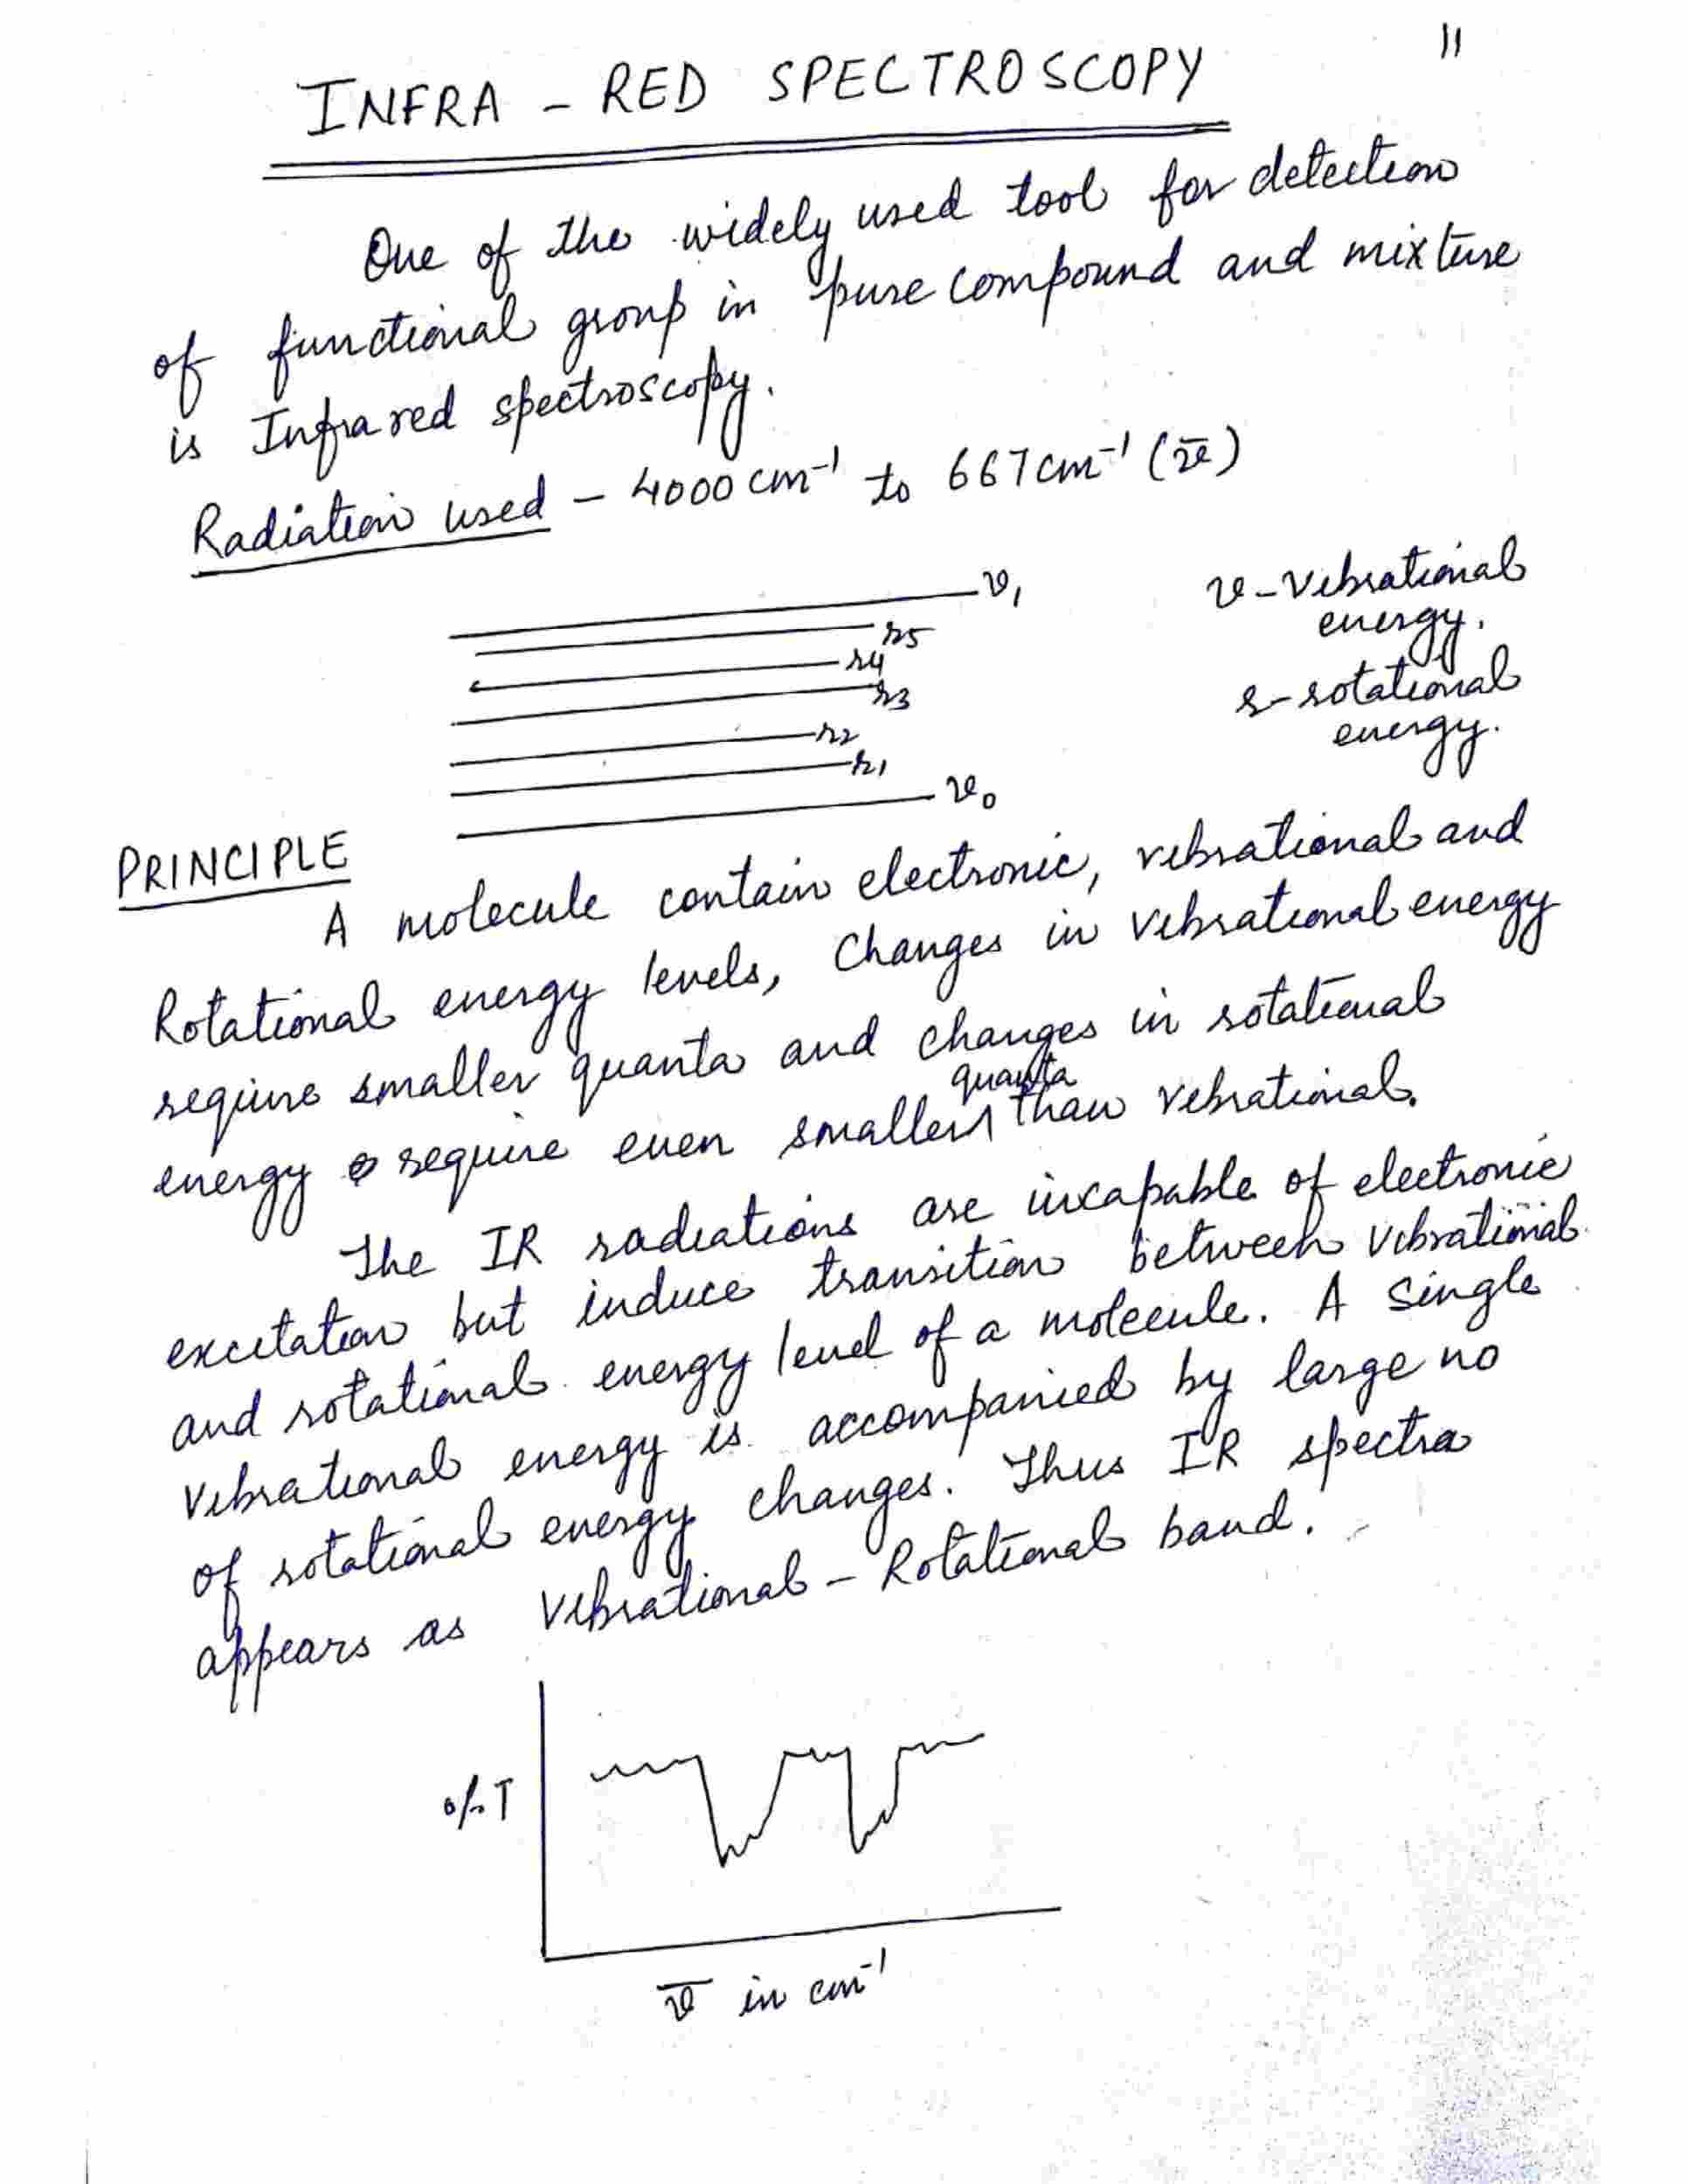 11
INFRA - RED SPECTROSCOPY
One of the widely used tool for detection
of functional group in pure compound and mixture
is Infrared spectroscopy.
Radiation used - 4000 cm⁻¹ to 667 cm⁻¹ (ν̅)
v₁
r5
r4
r3
r2
r1
v₀
v - Vibrational
energy.
r - rotational
energy.
PRINCIPLE
A molecule contain electronic, vibrational and
Rotational energy levels, Changes in vibrational energy
require smaller quanta and changes in rotational
energy require even smaller quanta than vibrational.
The IR radiations are incapable of electronic
excitation but induce transition between vibrational
and rotational energy level of a molecule. A single
vibrational energy is accompanied by large no
of rotational energy changes. Thus IR spectra
appears as Vibrational - Rotational band.
%T
ν̅ in cm⁻¹